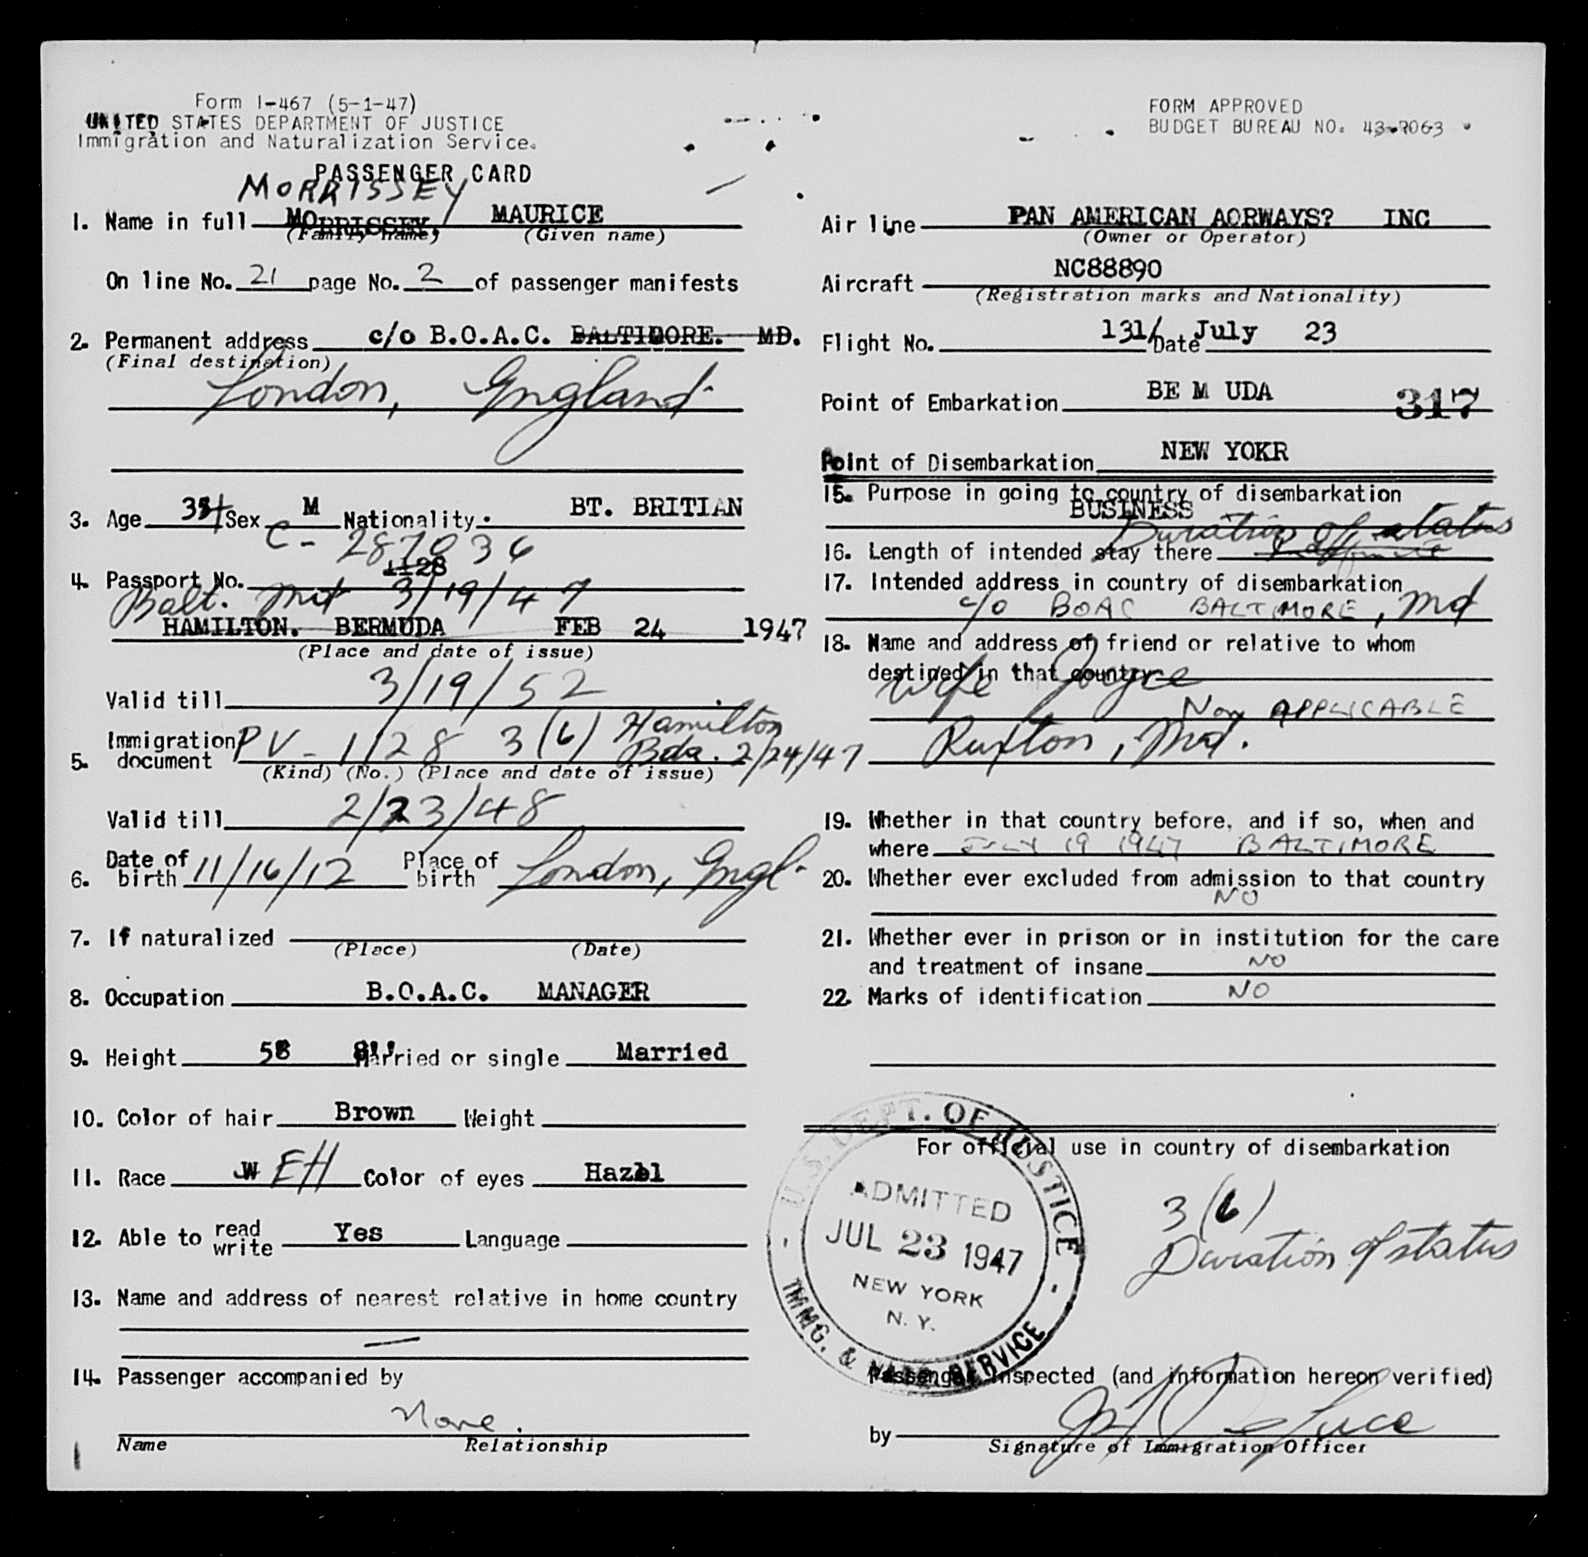 Form I-467 (5-1-47)
UNITED STATES DEPARTMENT OF JUSTICE
Immigration and Naturalization Service.
PASSENGER CARD
MORRISSEY
1. Name in full MORRISSEY, MAURICE
(Family name) (Given name)
On line No. 21 page No. 2 of passenger manifests
2. Permanent address c/o B.O.A.C. BALTIMORE. MD.
(Final destination)
London, England
3. Age Sex M Nationality. BT. BRITIAN
C - 287036
1128
4. Passport No.
Balt. Md 3/19/47
HAMILTON. BERMUDA FEB 24 1947
(Place and date of issue)
Valid till 3/19/52
5. Immigration document PV - 1128 3(6) Hamilton Bda. 2/24/47
(Kind) (No.) (Place and date of issue)
Valid till 2/23/48
6. Date of birth 11/16/12 Place of birth London, Engl.
7. If naturalized
(Place) (Date)
8. Occupation B.O.A.C. MANAGER
9. Height 58 8'' Married or single Married
10. Color of hair Brown Weight
11. Race W EH Color of eyes Hazel
12. Able to read write Yes Language
13. Name and address of nearest relative in home country
—
14. Passenger accompanied by
None.
Name Relationship
FORM APPROVED
BUDGET BUREAU NO. 43-R063
Air line PAN AMERICAN AORWAYS? INC
(Owner or Operator)
Aircraft NC88890
(Registration marks and Nationality)
Flight No. 131/ Date July 23
Point of Embarkation BE M UDA 317
Point of Disembarkation NEW YOKR
15. Purpose in going to country of disembarkation
BUSINESS
Duration of status
16. Length of intended stay there
17. Intended address in country of disembarkation
c/o BOAC BALTIMORE, Md
18. Name and address of friend or relative to whom
destined in that country
Wife Joyce
Not APPLICABLE
Ruxton, Md.
19. Whether in that country before, and if so, when and
where JULY 19 1947 BALTIMORE
20. Whether ever excluded from admission to that country
NO
21. Whether ever in prison or in institution for the care
and treatment of insane NO
22. Marks of identification NO
For official use in country of disembarkation
U.S. DEPT. OF JUSTICE
ADMITTED
JUL 23 1947
NEW YORK
N. Y.
IMMG. & NATZ. SERVICE
3(6)
Duration of status
Passenger inspected (and information hereon verified)
by
Signature of Immigration Officer